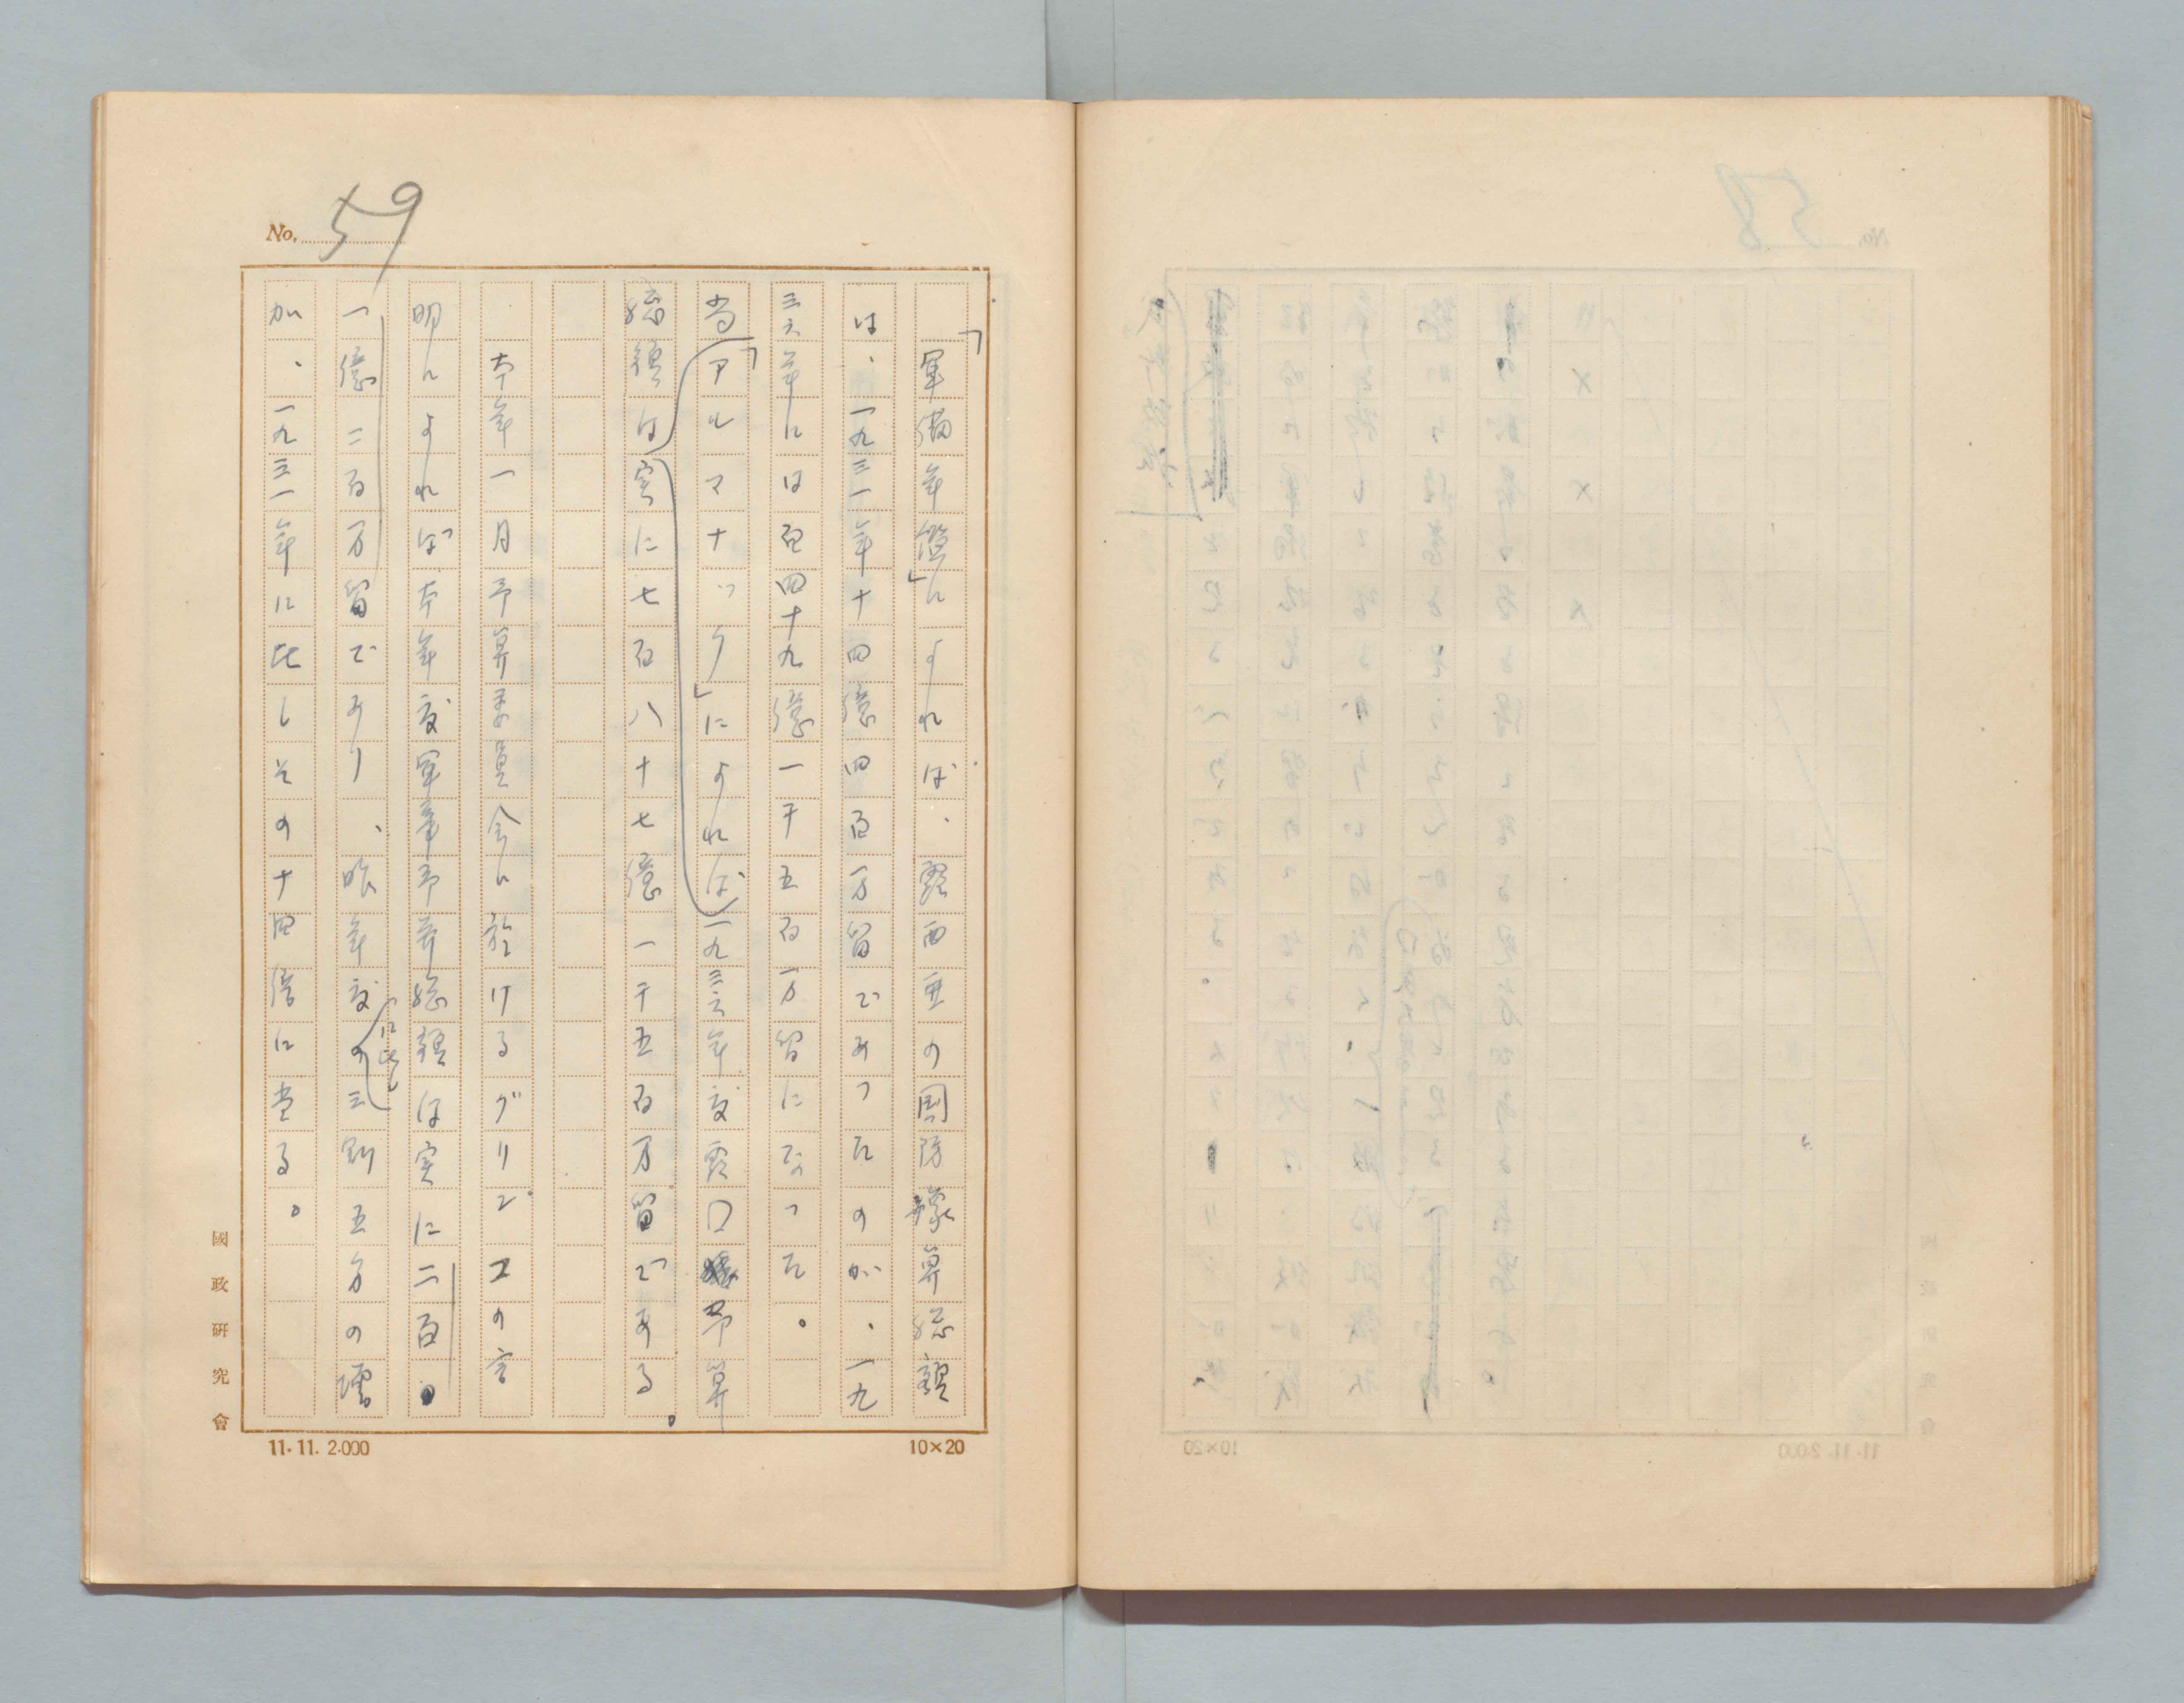 No. 59
「軍備年鑑」によれば、露西亜の国防豫算総額
は、一九三一年十四億四百万留であつたのが、一九
三六年には百四十九億一千五百万留になつた。
尚「アルマナッハ」によれば一九三六年度露国予算
総額は実に七百八十七億一千五百万留である。
本年一月予算委員会に於けるグリンコの言
明によれば本年度軍事予算総額は実に二百、
一億二百万留であり、昨年度に比しの三割五分の増
加、一九三一年に比しその十四倍に당る。
國政研究會
11.11. 2.000
10×20